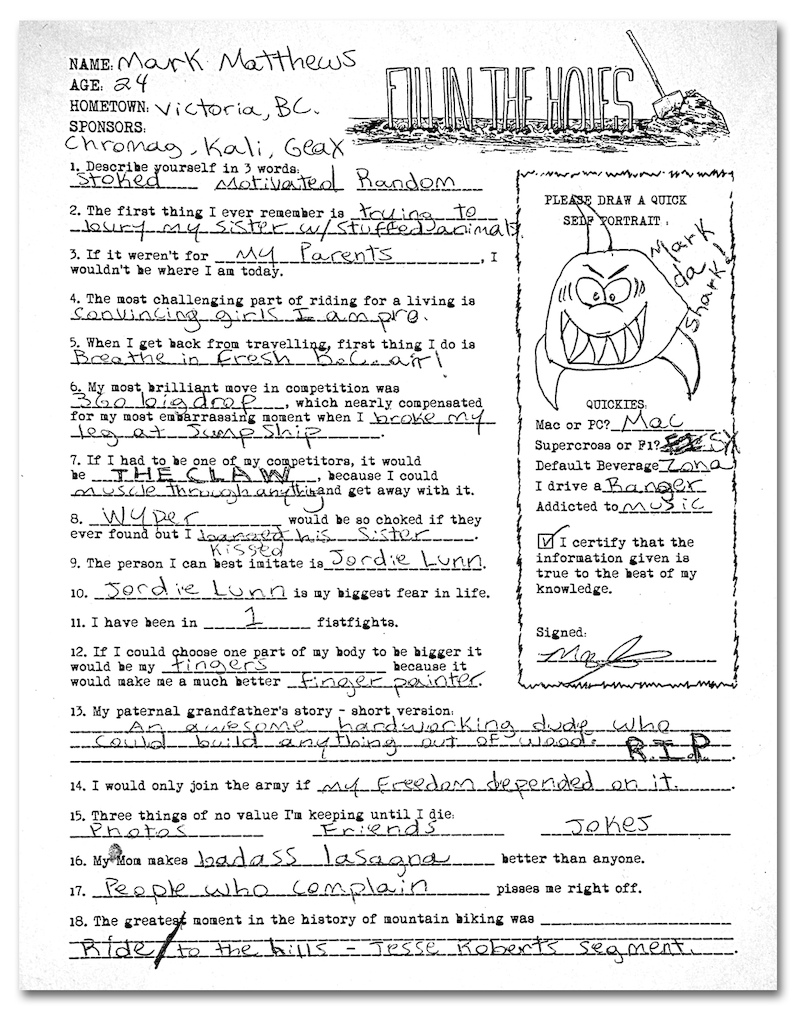 NAME: Mark Matthews
AGE: 24
HOMETOWN: Victoria, BC.
SPONSORS:
Chromag, Kali, Geax
FILL IN THE HOLES
1. Describe yourself in 3 words:
Stoked Motivated Random
2. The first thing I ever remember is trying to
bury my sister w/ stuffed animals
3. If it weren't for My Parents, I
wouldn't be where I am today.
4. The most challenging part of riding for a living is
Convincing girls I am pro.
5. When I get back from travelling, first thing I do is
Breathe in Fresh B.C. air!
6. My most brilliant move in competition was
360 big drop, which nearly compensated
for my most embarrassing moment when I broke my
leg at Jump Ship.
7. If I had to be one of my competitors, it would
be THE CLAW, because I could
muscle through anything and get away with it.
8. Wyper would be so choked if they
ever found out I his sister.
Kissed
9. The person I can best imitate is Jordie Lunn.
10. Jordie Lunn is my biggest fear in life.
11. I have been in 1 fistfights.
12. If I could choose one part of my body to be bigger it
would be my fingers because it
would make me a much better finger painter.
13. My paternal grandfather's story - short version:
An awesome hardworking dude who
could build anything out of wood. R.I.P.
14. I would only join the army if my Freedom depended on it.
15. Three things of no value I'm keeping until I die:
Photos Friends Jokes
16. My Mom makes badass lasagna better than anyone.
17. People who complain pisses me right off.
18. The greatest moment in the history of mountain biking was
Ride to the hills - Jesse Roberts segment.
PLEASE DRAW A QUICK
SELF PORTRAIT:
Mark
da
Shark!
QUICKIES:
Mac or PC? Mac
Supercross or F1? SX
Default Beverage Zona
I drive a Ranger
Addicted to music
I certify that the
information given is
true to the best of my
knowledge.
Signed: